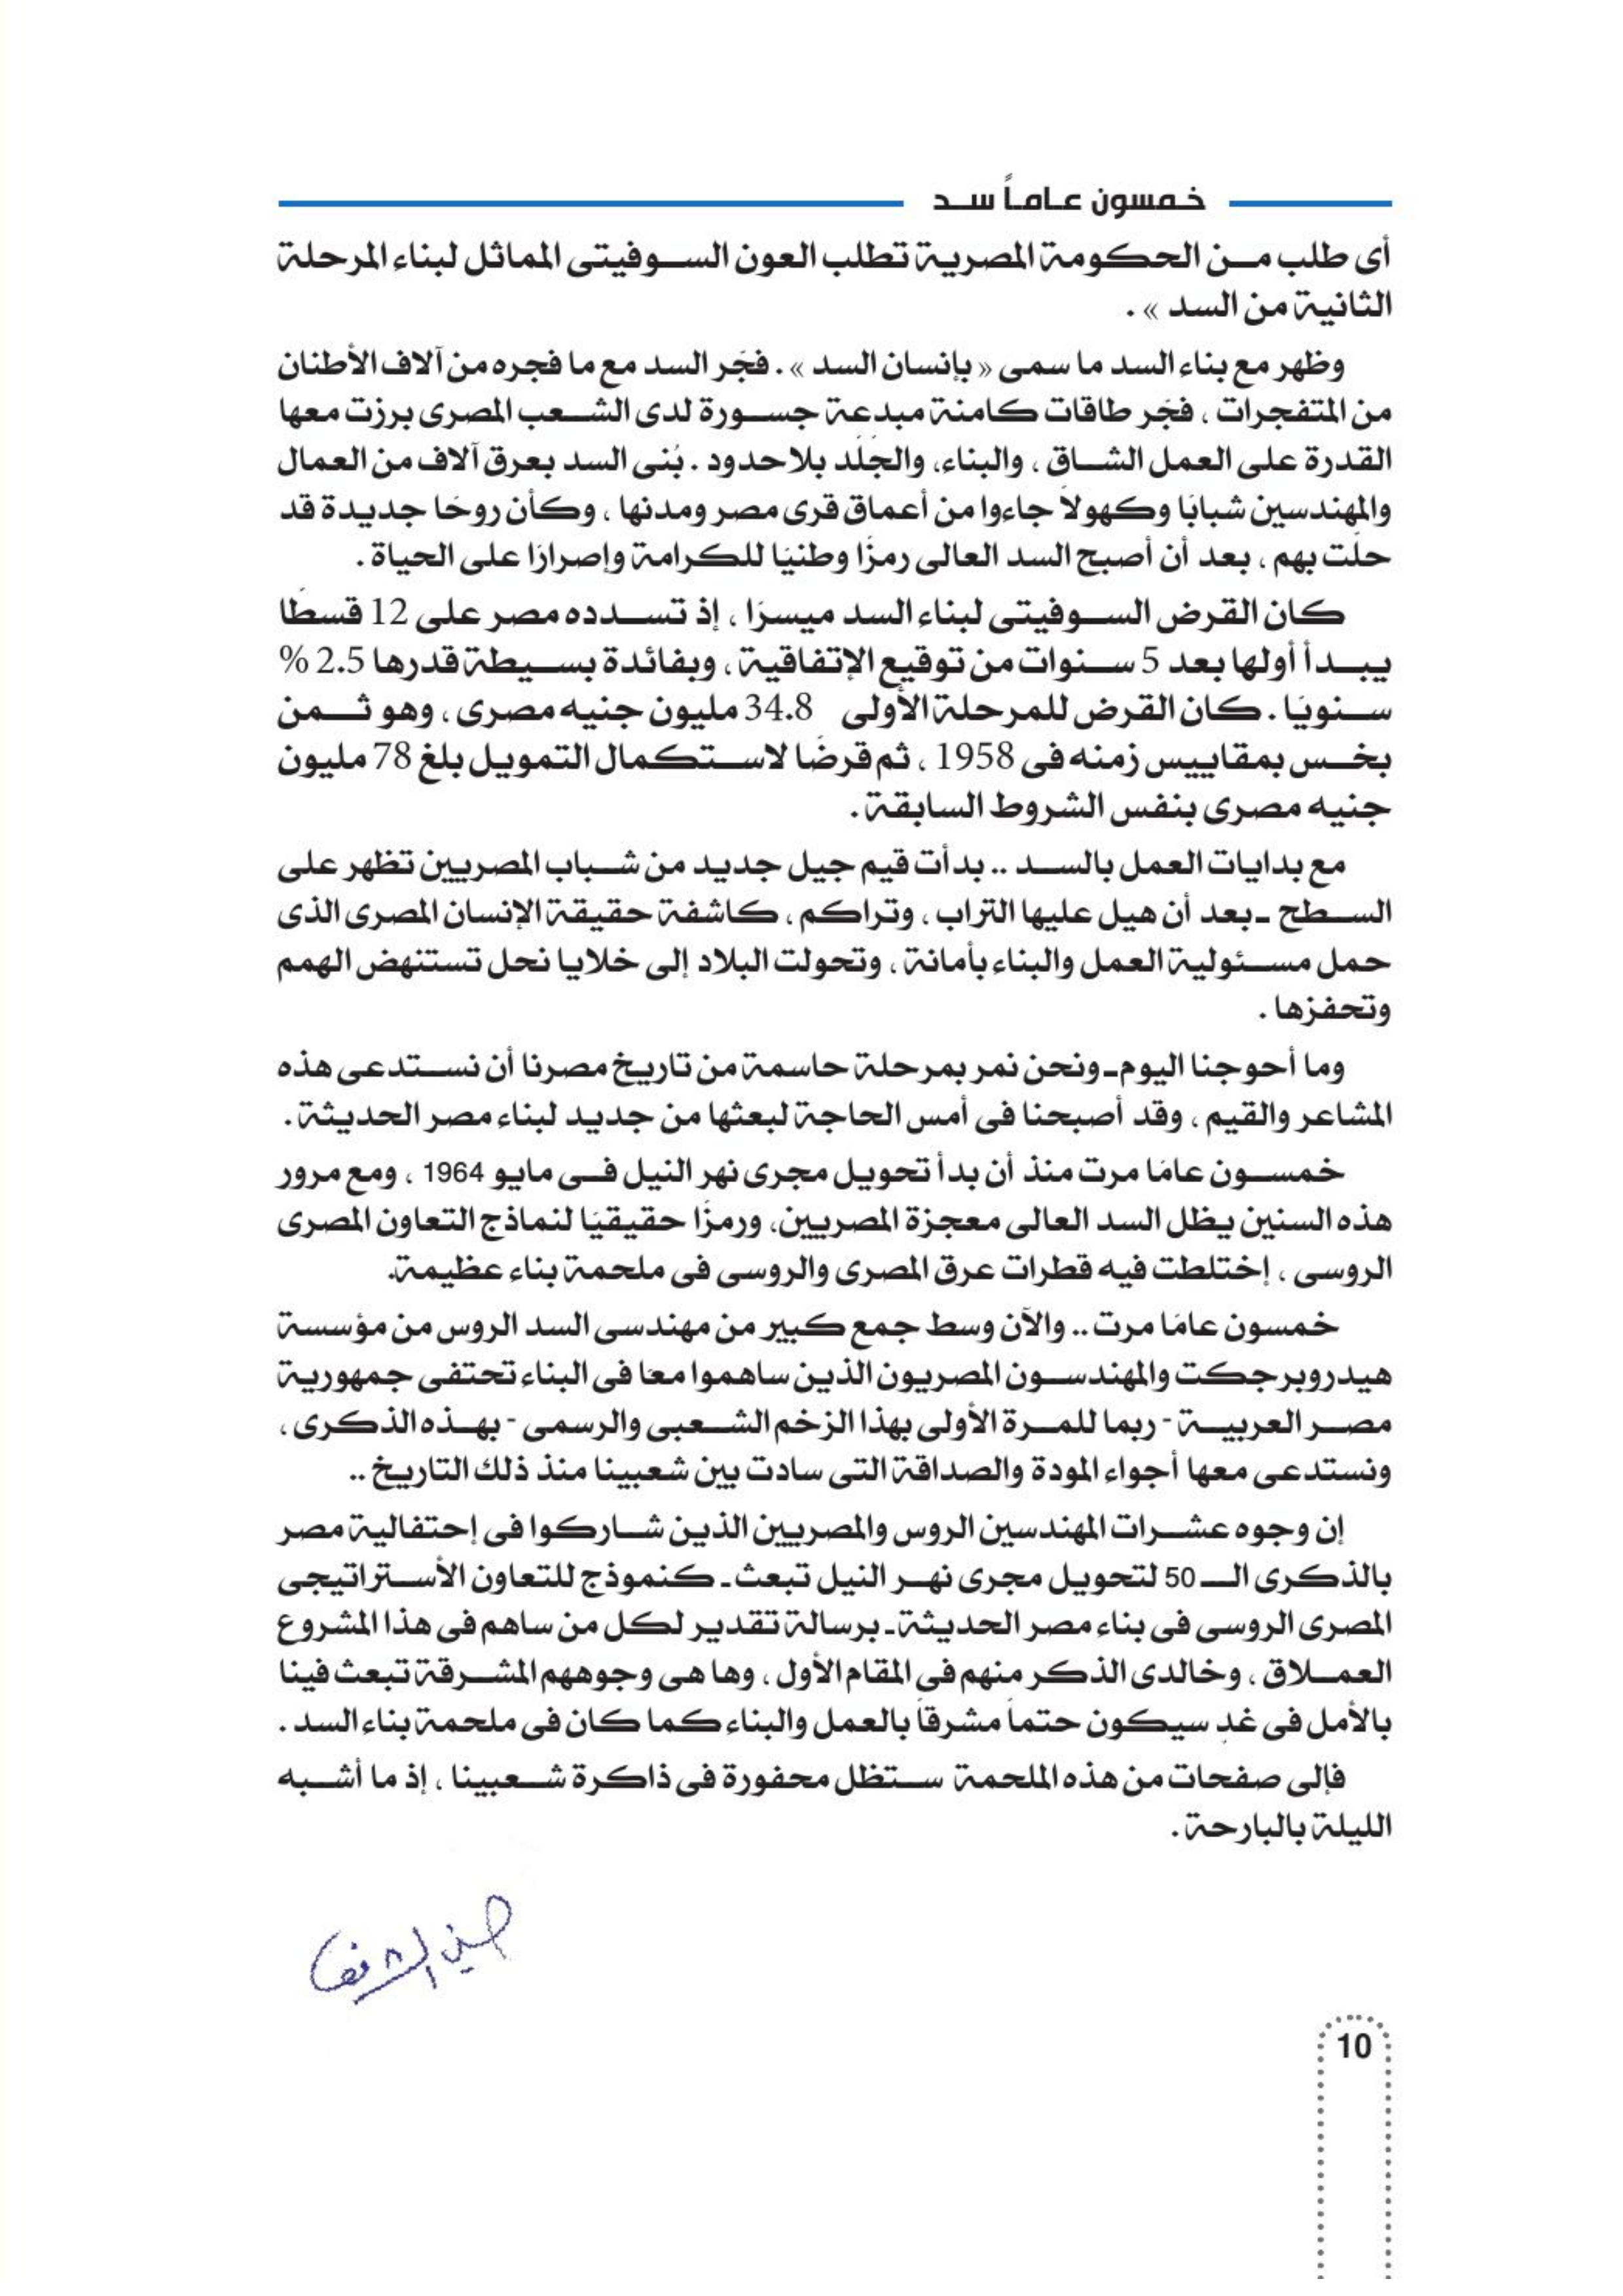 خمسون عاماً سد
أى طلب من الحكومة المصرية تطلب العون السوفيتى المماثل لبناء المرحلة
الثانية من السد » .
وظهر مع بناء السد ما سمى « بإنسان السد » . فجّر السد مع ما فجره من آلاف الأطنان
من المتفجرات ، فجّر طاقات كامنة مبدعة جسورة لدى الشعب المصرى برزت معها
القدرة على العمل الشاق ، والبناء، والجَلَد بلا حدود . بُنى السد بعرق آلاف من العمال
والمهندسين شبابًا وكهولاً جاءوا من أعماق قرى مصر ومدنها ، وكأن روحًا جديدة قد
حلّت بهم ، بعد أن أصبح السد العالى رمزًا وطنيًا للكرامة وإصرارًا على الحياة .
كان القرض السوفيتى لبناء السد ميسرًا ، إذ تسدده مصر على 12 قسطًا
يبدأ أولها بعد 5 سنوات من توقيع الإتفاقية ، وبفائدة بسيطة قدرها 2.5 %
سنويًا . كان القرض للمرحلة الأولى 34.8 مليون جنيه مصرى ، وهو ثمن
بخس بمقاييس زمنه فى 1958 ، ثم قرضًا لاستكمال التمويل بلغ 78 مليون
جنيه مصرى بنفس الشروط السابقة .
مع بدايات العمل بالسد .. بدأت قيم جيل جديد من شباب المصريين تظهر على
السطح - بعد أن هيل عليها التراب ، وتراكم ، كاشفة حقيقة الإنسان المصرى الذى
حمل مسئولية العمل والبناء بأمانة ، وتحولت البلاد إلى خلايا نحل تستنهض الهمم
وتحفزها .
وما أحوجنا اليوم - ونحن نمر بمرحلة حاسمة من تاريخ مصرنا أن نستدعى هذه
المشاعر والقيم ، وقد أصبحنا فى أمس الحاجة لبعثها من جديد لبناء مصر الحديثة .
خمسون عامًا مرت منذ أن بدأ تحويل مجرى نهر النيل فى مايو 1964 ، ومع مرور
هذه السنين يظل السد العالى معجزة المصريين، ورمزًا حقيقيًا لنماذج التعاون المصرى
الروسى ، إختلطت فيه قطرات عرق المصرى والروسى فى ملحمة بناء عظيمة.
خمسون عامًا مرت .. والآن وسط جمع كبير من مهندسى السد الروس من مؤسسة
هيدروبرجكت والمهندسون المصريون الذين ساهموا معًا فى البناء تحتفى جمهورية
مصر العربية - ربما للمرة الأولى بهذا الزخم الشعبى والرسمى - بهذه الذكرى ،
ونستدعى معها أجواء المودة والصداقة التى سادت بين شعبينا منذ ذلك التاريخ ..
إن وجوه عشرات المهندسين الروس والمصريين الذين شاركوا فى إحتفالية مصر
بالذكرى الـ 50 لتحويل مجرى نهر النيل تبعث - كنموذج للتعاون الأستراتيجى
المصرى الروسى فى بناء مصر الحديثة - برسالة تقدير لكل من ساهم فى هذا المشروع
العملاق ، وخالدى الذكر منهم فى المقام الأول ، وها هى وجوههم المشرقة تبعث فينا
بالأمل فى غدٍ سيكون حتماً مشرقاً بالعمل والبناء كما كان فى ملحمة بناء السد .
فإلى صفحات من هذه الملحمة ستظل محفورة فى ذاكرة شعبينا ، إذ ما أشبه
الليلة بالبارحة .
10